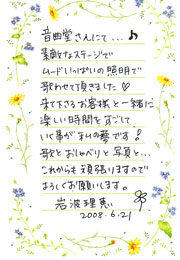 音曲堂さんにて...♪
素敵なステージで
ムードいっぱいの照明で
歌わせて頂きました♡
来て下さるお客様と一緒に
楽しい時間をすごして
いく事がまりの夢です!
歌とおしゃべりと写真と...
これからも頑張りますので
よろしくお願いします。
岩波理恵
2008.6.21